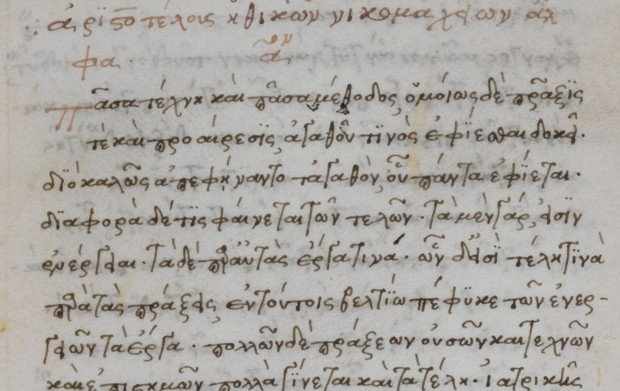 : ἀριστοτέλοις ἠθικῶν νικομαχείων ἄλ
φα. 
Πᾶσα τέχνη καὶ πᾶσα μέθοδος, ὁμοίως δὲ πρᾶξις
τὲ καὶ προαίρεσις, ἀγαθοῦ τινὸς ἐφίεσθαι δοκεῖ.
διὸ καλῶς ἀπεφήναντο τἀγαθὸν, οὗ πάντα ἐφίεται.
διαφορὰ δέ τις φαίνεται τῶν τελῶν. τὰ μὲν γάρ, εἰσὶν
ἐνέργειαι. τὰ δὲ παρ' αὐτὰς ἔργα τινά. ὧν δ' εἰσὶ τέλη τινὰ
παρὰ τὰς πράξεις, ἐν τούτοις βελτίω πέφυκε τῶν ἐνερ-
γειῶν τὰ ἔργα. πολλῶν δὲ πράξεων οὐσῶν καὶ τεχνῶν
καὶ ἐπιστημῶν πολλὰ γίνεται καὶ τὰ τέλη. ἰατρικῆς